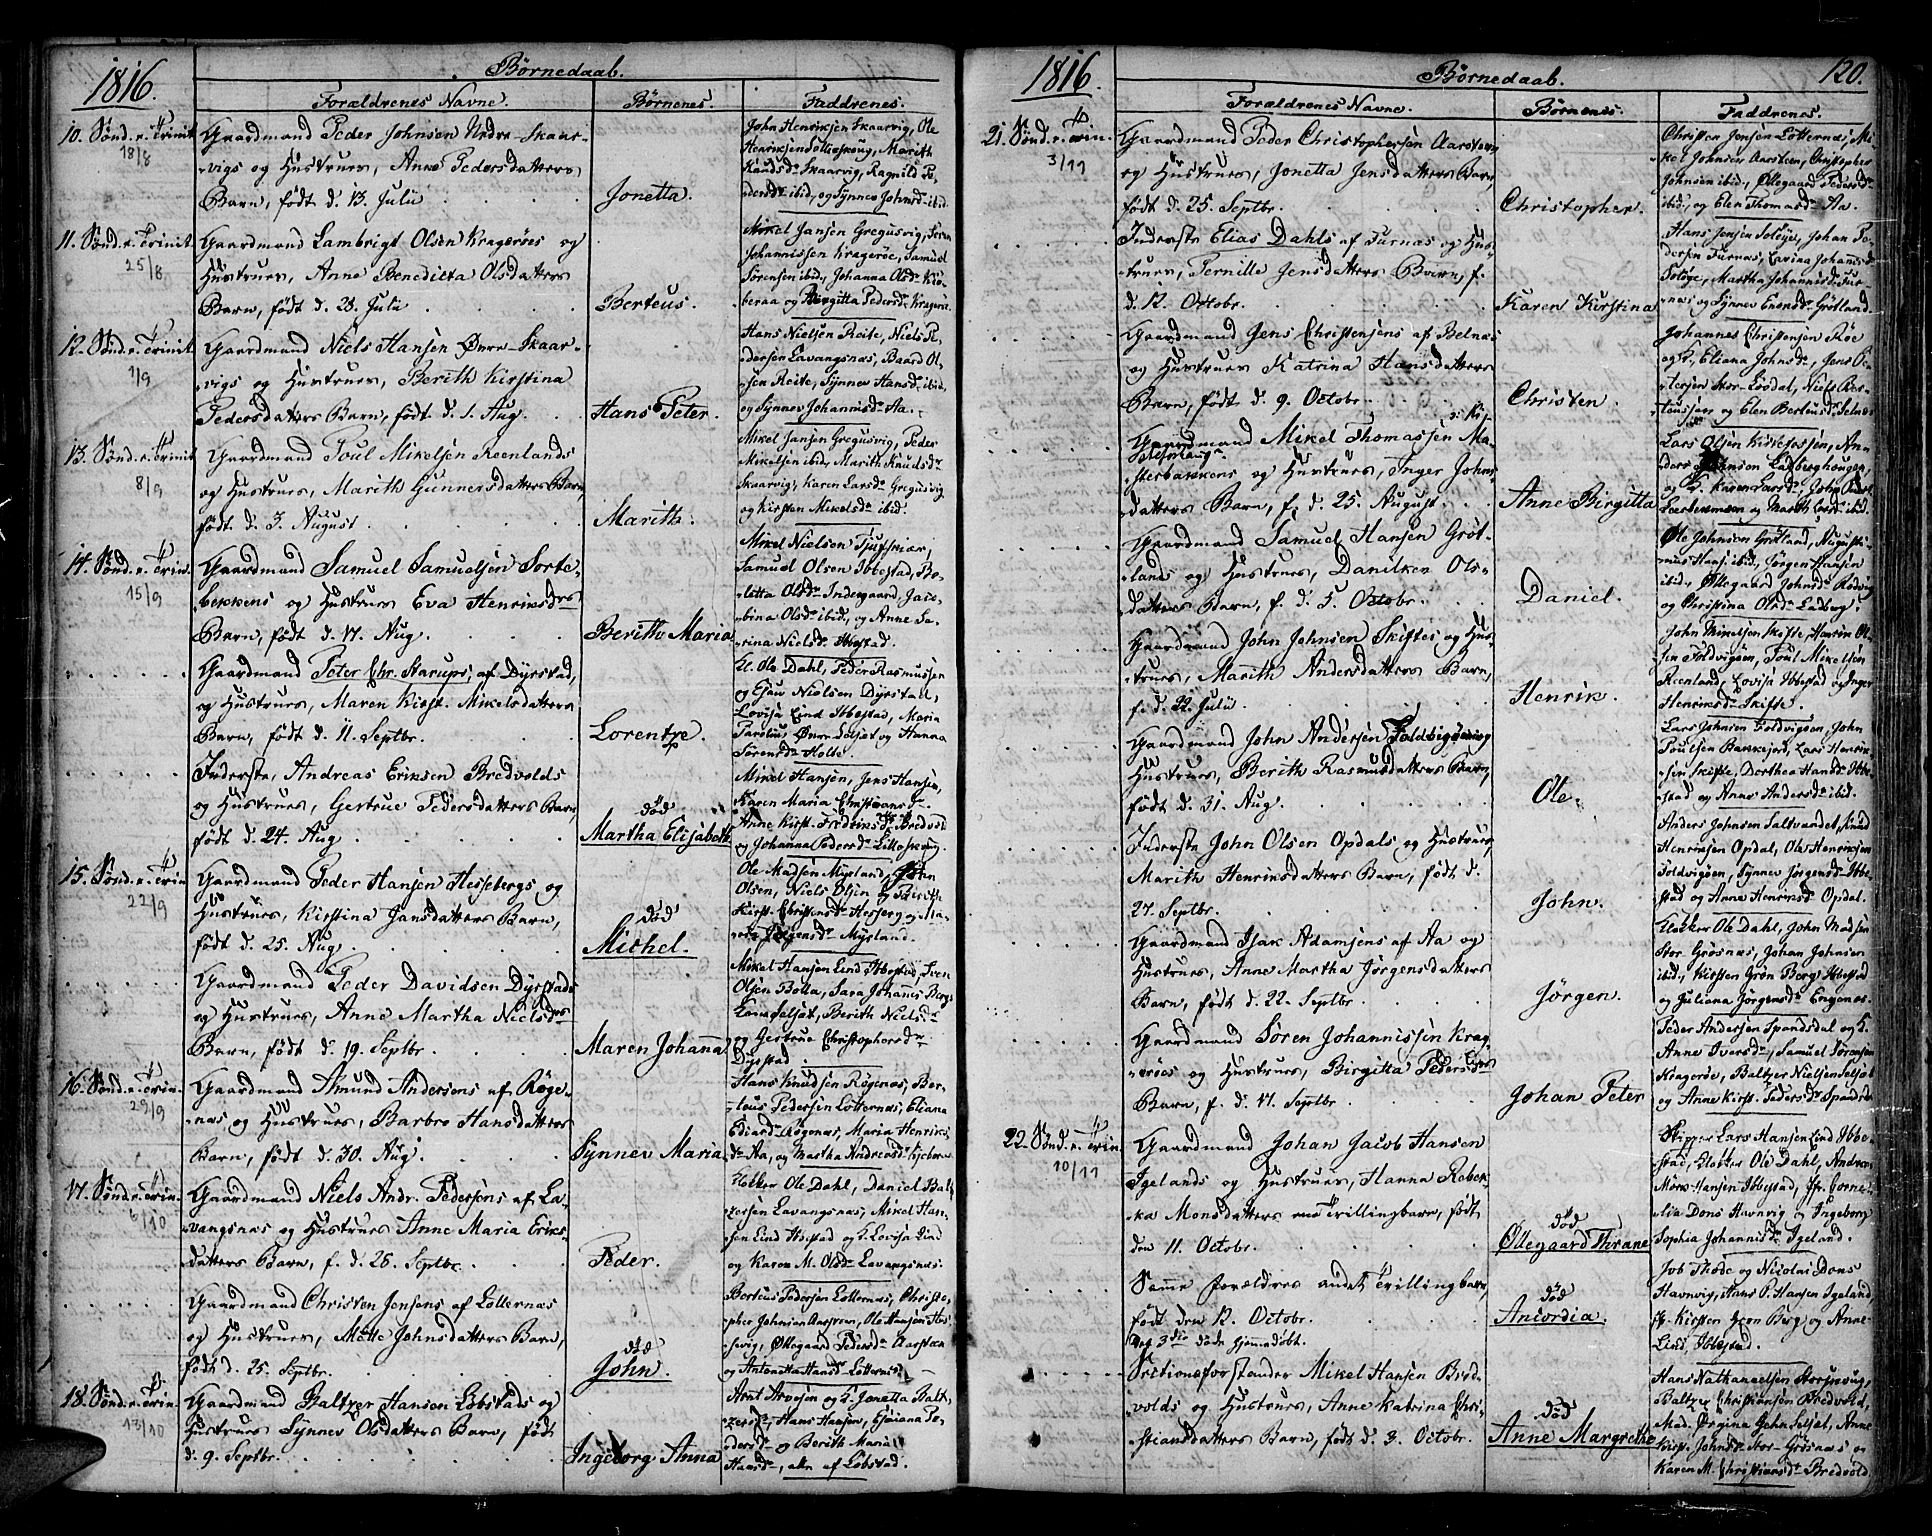 1816.
Børnedaab.
Forældrenes Navne.
Børnenes.
Faddrenes.
10. Sønd. e. Trinit.
18/8
Gaardmand Peder Johnsen Nedre-Skaar-
vigs og Hustrues, Anne Pedersdatters
Barn, født d. 13. Julii
Jonetta.
John Henriksen Skaarvig, Ole
Henriksen Lilleskoug, Marith
Knudsdr Skaarvig, Ragnild Pe-
dersdr ibid., og Synnev Johnsdr ibid.
11. Sønd. e. Trinit.
25/8
Gaardmand Lambrigt Olsen Kragerøes og
Hustrues, Anne Benedicta Olsdatters
Barn, født d. 23. Julii
Berteus.
Mikel Jansen Gregusvig, Søren
Johannissen Kragerøe, Samuel
Sørensen ibid., Johanna Olsdr
og Birgitta Pedersdr Kragerøe
12. Sønd. e. Trinit.
1/9
Gaardmand Niels Hansen Øvre-Skaar-
vigs og Hustrues, Berith Kirstina
Pedersdatters Barn, født d. 1. Aug.
Hans Peter.
Hans Nielsen Reite, Niels Pe-
dersen Lavangsnæs, Baard Ol-
sen Reite, Synnev Hansdr ibid.
og Synnev Johannisdr Aa.
13. Sønd. e. Trinit.
8/9
Gaardmand Poul Mikelsen Reenlands
og Hustrues, Marith Gunnersdatters Barn,
født d. 3. August
Marith.
Mikel Jansen Gregusvig, Peder
Mikelsen ibid., Marith Knudsdr
Skaarvig, Karen Larsdr Gregusvig
og Kirsten Mikelsdr ibid.
14. Sønd. e. Trin.
15/9
Gaardmand Samuel Samuelsen Sorte-
bekkens og Hustrues Eva Henriksdrs
Barn, født d. 17. Aug.
Berith Maria
Mikel Nielsen
Samuel Olsen Ibbestad, Bo-
letta Olsdr Indergaard, Jaco-
bina Olsdr ibid., og Anne Sa-
rina Nielsdr Ibbestad.
Gaardmand Peter Chr. Aarups, af Dyrstad,
og Hustrues, Maren Kirst. Mikelsdatters
Barn, født d. 11. Septbr.
Lorentze.
Kl. Ole Dahl, Peder Rasmussen
og Nielsen Dyrstad,
Lovisa Lind Ibbestad, Maria
og Hanna
Sørensdr Holte.
Inderste, Andreas Eriksen Bredvolds
og Hustrues, Gertrue Pedersdatters Barn,
født d. 24. Aug
død
Martha Elisabeth.
Mikel Hansen, Jens Hansen,
Karen Maria Christiansdr
Anne Kirst. Fredriksdr Bredvold
og Johanna Pedersdr Lilleskoug.
15. Sønd. e. Trin
22/9
Gaardmand Peder Hansen Hessebergs og
Hustrues, Kirstina Jansdatters Barn,
født d. 25. Aug.
død
Michel.
Ole Madsen Mysland, John
Olsen, Niels Olsen og Berith
Kirst. Christensdr Hesberg og Ma-
ria Jørgensdr Mysland.
Gaardmand Peder Davidsen Dyrstads
og Hustrues, Anne Martha Nielsdrs
Barn, født d. 19. Septbr.
Maren Johanna
Mikel Hansen Lind Ibbestad, Sven
Olsen Bolla, Sara Johannes Berg
Berith Nielsdr
og Gertrue Christophersdr
Dyrstad.
16. Sønd. e. Trin.
29/9
Gaardmand Amund Andersens af Røge-
næs og Hustrues, Barbro Hansdatters
Barn, født d. 30. Aug.
Synnev Maria.
Hans Knudsen Røgenæs, Ber-
teus Pedersen Lotternæs, Eliana
Røgenæs, Maria Henriks-
dr Aa, og Martha Andreasdr
17. Sønd. e. Trin.
6/10
Gaardmand Niels Andr. Pedersens af La-
vangsnæs og Hustrues Anne Maria Eriks-
datters Barn, f. d. 26. Septbr.
Peder.
Klokker Ole Dahl, Daniel Balt-
zersen Lavangsnæs, Mikel Han-
sen Lind Ibbestad og K. Lovisa Lind
og Karen M. Olsdr Lavangsnæs.
Gaardmand Christen Jensens af Lotternæs
og Hustrues, Mette Johnsdatters Barn,
født d. 25. Septbr.
død
John.
Berteus Pedersen Lotternæs, Christo-
pher Johnsen Aarsteen, Ole Hansen
Øllegaard Pedersdr Aarsteen
og Antonetta Hansdr Lotternæs.
18. Sønd. e. Trin.
13/10
Gaardmand Baltzer Hansen Løbstads og
Hustrues Synnev Olsdatters Barn, født
d. 9. Septbr.
Ingeborg Anna
Arnt Arvesen og K. Jonetta Balt-
zersdr, Hans Hansen, Pe-
dersdr og Berith Maria
Hansdr, alle af Løbstad.
1816.
Børnedaab.
120.
Forældrenes Navne.
Børnenes.
Faddrenes.
21. Sønd. e. Trin.
3/11
Gaardmand Peder Christophersen Aarsteens
og Hustrues, Jonetta Jensdatters Barn,
født d. 25. Septbr.
Christopher.
Christen Jensen Lotternæs, Mi-
kel Johnsen Aarsteen, Christopher
Johnsen ibid., Øllegaard Pedersdr
ibid., og Elen Thomasdr Aa.
Inderste Elias Dahls af Furnæs og Hus-
trues, Pernille Jensdatters Barn, f.
d. 12. Octobr.
Karen Kirstina
Hans Jensen Sotøye, Johan Pe-
dersen Furnæs, Johannisdr
Sotøye, Martha Johannisdr Fur-
næs og Synnev Enersdr Grøtland.
Gaardmand Jens Christensens af Belnæs
og Hustrues Katrina Hansdatters
Barn, født d. 9. Octobr.
Christen.
Johannes Christensen Røe
og K. Eliana Johnsdr, Jens Pe-
tersen Stor-Løsdal, Niels Ber-
teussen og Elen Berteusdr Selnæs
Gaardmand Mikel Thomassen Ma-
sterbakkens og Hustrues, Inger Johns-
datters Barn, f. d. 25. August.
Anne Birgitta
Lars Olsen Kirkefossen, An-
ders Johnsen Ladberghougen,
og K. Karen Larsdr, John
og Marth Larsdr ibid.
Gaardmand Samuel Hansen Grøt-
lands og Hustrues, Danilken Ols-
datters Barn, f. d. 5. Octobr.
Daniel.
Ole Johnsen Grøtland, Augusti-
nus Hans. ibid., Jørgen Hansen
ibid., Øllegaard Johnsdr
og Christina Olsdr Ladberg.
Gaardmand John Johnsen Skiftes og Hus-
trues, Marith Andersdatters Barn,
f. d. 22. Julii
Henrik.
John Mikelsen Skifte, Henrik Ol-
sen Foldvigøen, Poul Mikelsen
Reenland, Lovisa Ibbestad og Inger
Henriksdr Skifte.
Gaardmand John Andersen Foldvigøens og
Hustrues, Berith Rasmusdatters Barn,
født d. 31. Aug.
Ole.
Lars Johnsen Foldvigøen, John
Poulsen Bakkejord, Lars Henrik-
sen Skifte, Dorthea Hansdr Ibbe-
stad og Anne Andersdr ibid.
Inderste John Olsen Opdals og Hustrues,
Marith Henriksdatters Barn, født d.
27. Septbr.
John.
Anders Johnsen Saltvandet, Knud
Henriksen Opdal, Ole Henriksen
Foldvigøen, Synnev Jørgensdr Ibbe-
stad og Anne Henriksdr Opdal.
Gaardmand Isak Adamsens af Aa og
Hustrues, Anne Martha Jørgensdatters
Barn, født d. 22. Septbr.
Jørgen.
Klokker Ole Dahl, John Madsen
Stor Grøsnæs, Johan Johnsen
ibid., Kirsten Grøn Berg Ibbestad
og Juliana Jørgensdr Engenæs.
Gaardmand Søren Johannissen Krag-
erøes og Hustrues, Birgitta Pedersdrs
Barn, f. d. 17. Septbr.
Johan Peter
Peder Andersen Spandsdal og K.
Anne Iversdr, Samuel Sørensen
Kragerøe, Baltzer Nielsen Selset
og Anne Kirst. Pedersdr Spandsd.
22. Sønd. e. Trin.
10/11
Gaardmand Johan Jacob Hansen
Igelands og Hustrues, Hanna Rebek-
ka Monsdatters ene Trillingbarn, født
den 11. Octobr.
død
Øllegaard Thrane
Skipper Lars Hansen Lind Ibbe-
stad, Klokker Ole Dahl, Andreas
Mørk Hansen Ibbestad, Jfr. Corne-
lia Dons Havnvig og Ingeborg
Sophia Johannisdr Igeland.
Samme Forældres andet Trillingbarn,
født den 12. Octobr.
Det 3die døde hjemmedøbt.
død
Ancordia.
Job Thode og Nicolai Dons
Havnvig, Hans P. Hansen Igeland,
Jfr. Kirsten Grøn Berg og Anne
Lind, Ibbestad.
Mikel Hansen Bred-
volds og Hustrues, Anne Katrina Chri-
stiansdatters Barn, født d. 3. Octobr.
død
Anne Margrethe
Hans Nathanaelsen
Baltzer Christiansen Bredvold,
Mad.Ørgina Selset, Anne
Kirst. Johnsdr Stor-Grøsnæs og
Karen M. Christiansdr Bredvold.